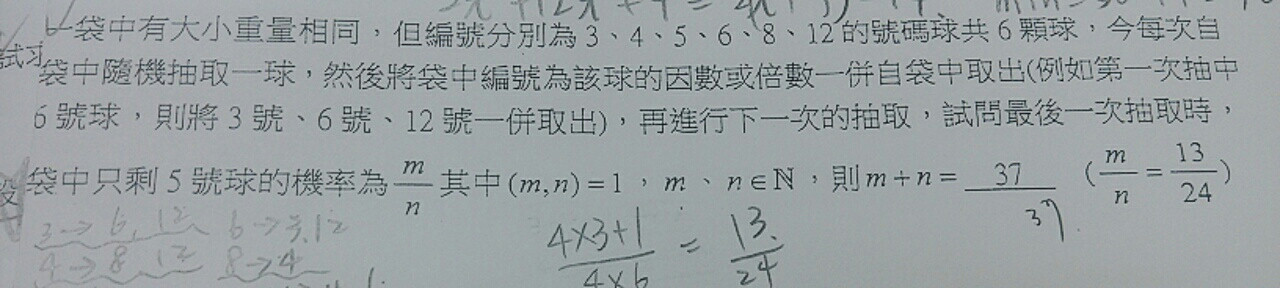 一袋中有大小重量相同，但編號分別為 3、4、5、6、8、12 的號碼球共 6 顆球，今每次自
試习
袋中隨機抽取一球，然後將袋中編號為該球的因數或倍數一併自袋中取出(例如第一次抽中
6 號球，則將 3 號、6 號、12 號一併取出)，再進行下一次的抽取，試問最後一次抽取時，
袋中只剩 5 號球的機率為 m/n 其中 (m, n) = 1，m、n∈ℕ，則 m + n = 37 (m/n = 13/24)
37
3→6, 12 6→3, 12
4→8, 12 8→4
4×3+1/4×6 = 13/24